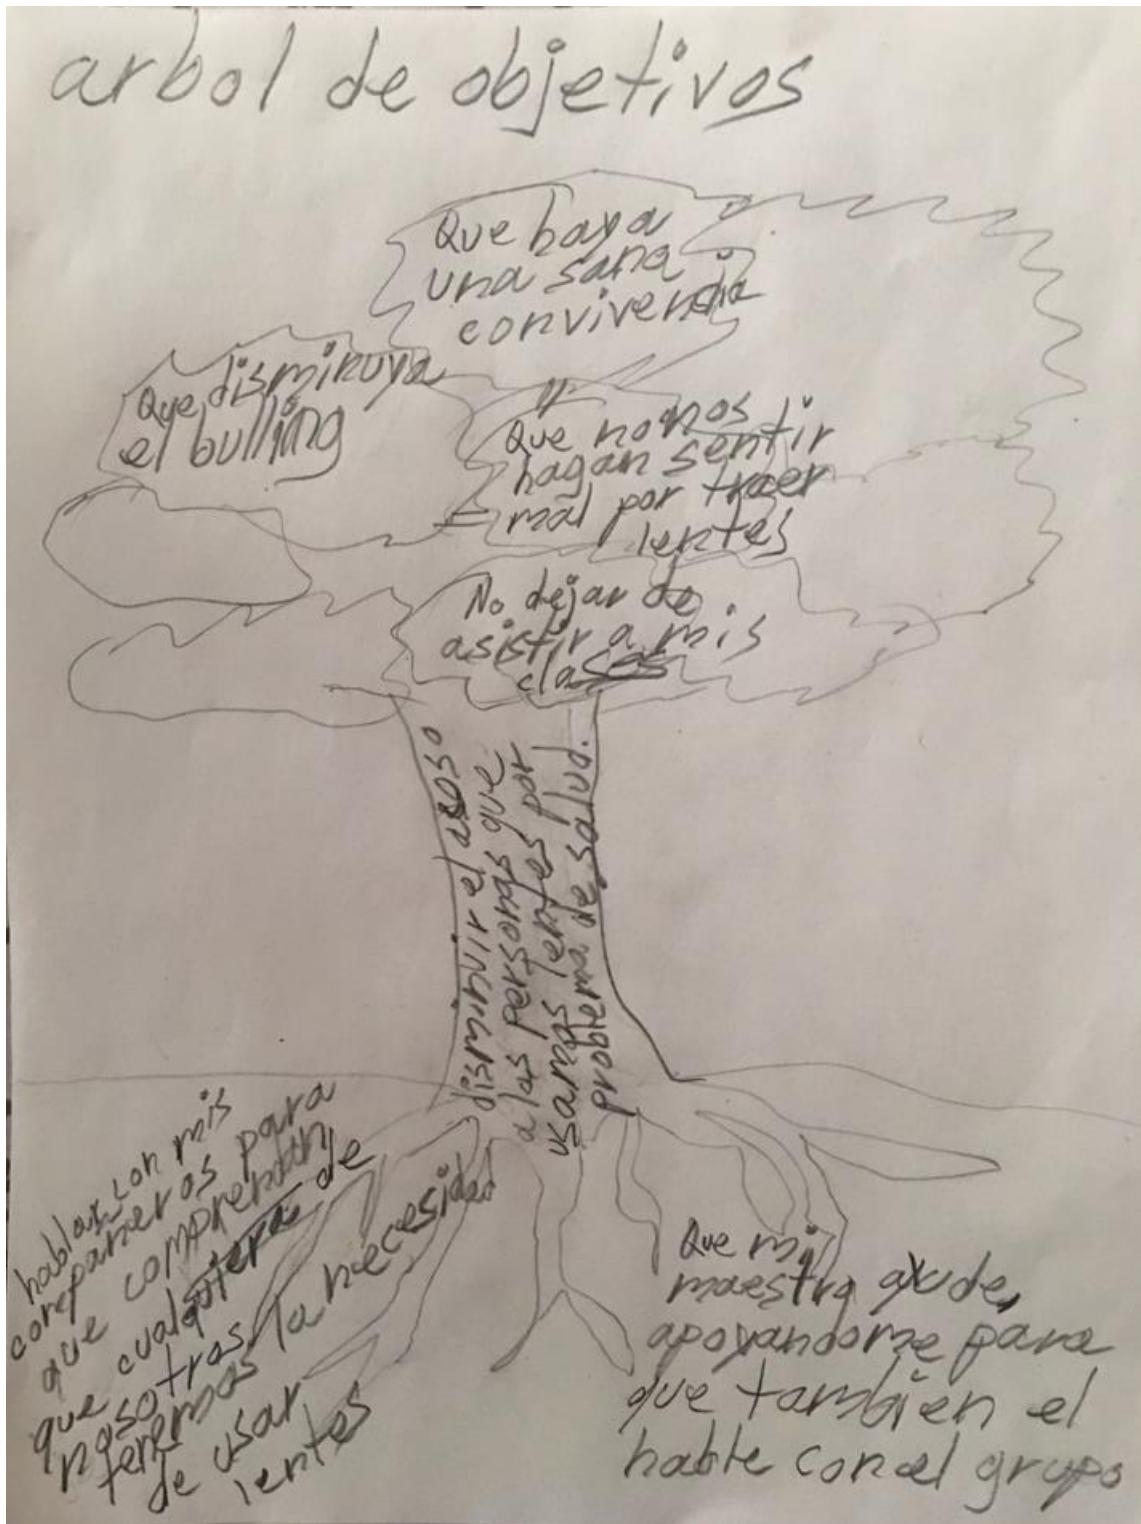 arbol de objetivos
Que haya
una sana
convivencia
Que disminuya
el bulling
Que no nos
hagan sentir
mal por traer
lentes
No dejar de
asistir a mis
clases
disminuir el acoso
a las personas que
usamos lentes por
problema de salud.
hablar con mis
compañeros para
que comprendan
que cualquiera de
nosotros
tenemos la necesidad
de usar
lentes
Que mi
maestra ayude,
apoyandome para
que también el
hable con el grupo